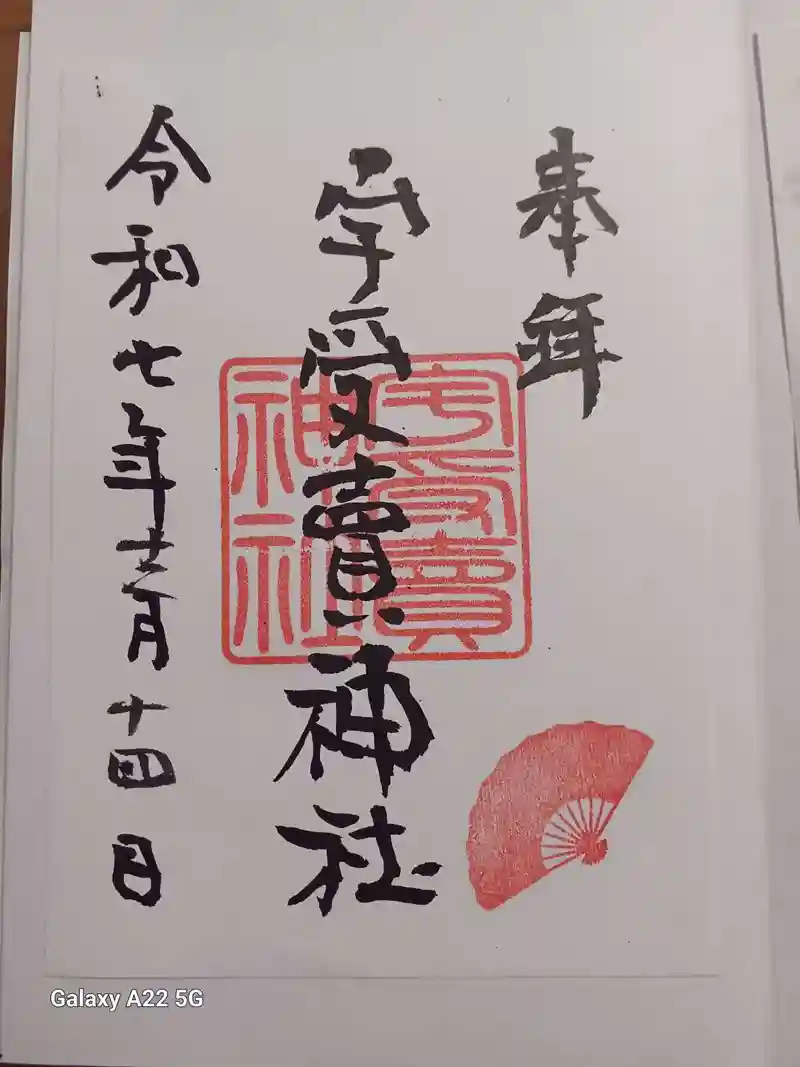 奉拜
宇受賣神社
宇受賣
神社
令和七年十二月十四日
Galaxy A22 5G